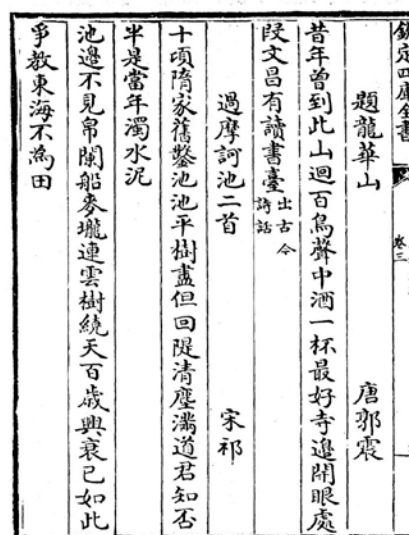 欽定四庫全書 卷三
題龍華山 唐郭震
昔年曾到此山迴百鳥聲中酒一杯最好寺邉開眼處
段文昌有讀書臺 出古今詩話
過摩訶池二首 宋祁
十頃隋家舊鑿池池平樹盡但回隄清塵滿道君知否
半是當年濁水泥
池邉不見帛闌船麥壠連雲樹繞天百歲興衰已如此
爭教東海不為田